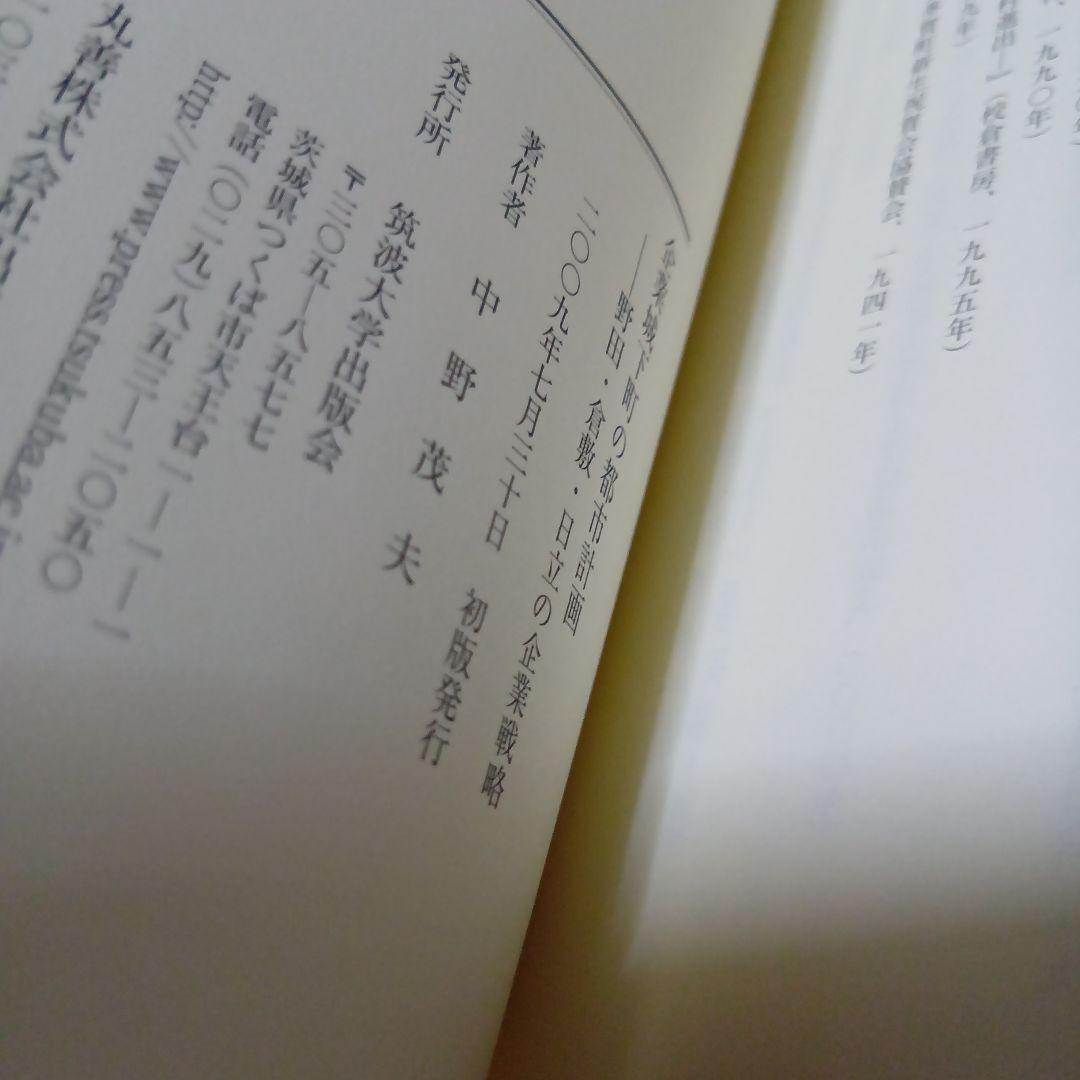 、一九九〇年)
一』(校倉書房、一九九五年)
九年)
会、一九四一年)
企業城下町の都市計画
——野田・倉敷・日立の企業戦略
二〇〇九年七月三十日 初版発行
著作者 中野茂夫
発行所 筑波大学出版会
〒三〇五—八五七七
茨城県つくば市天王台一—一—一
電話(〇二九)八五三—二〇五〇
http://www.press.tsukuba.ac.j
丸善株式会社出